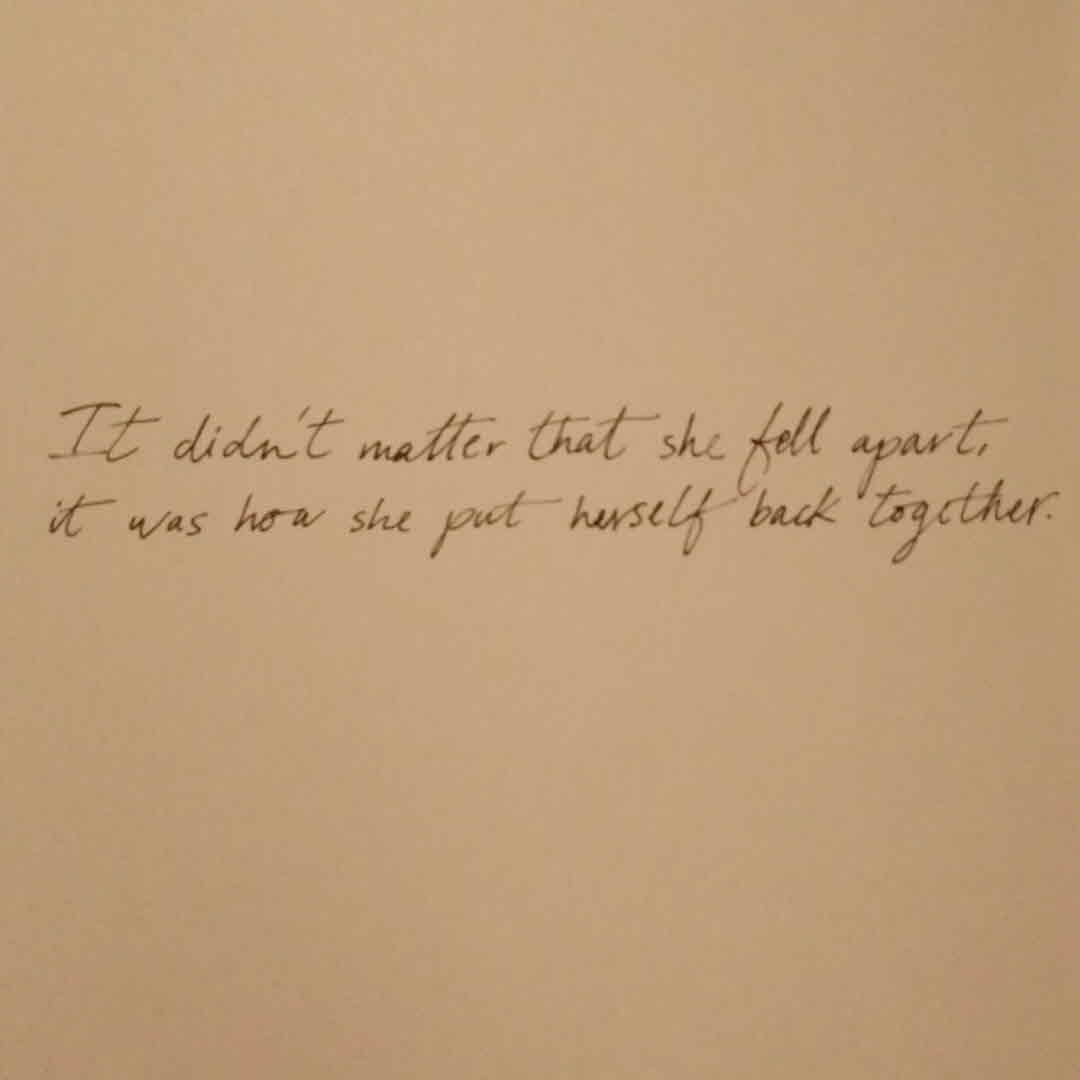 It didn't matter that she fell apart,
it was how she put herself back together.